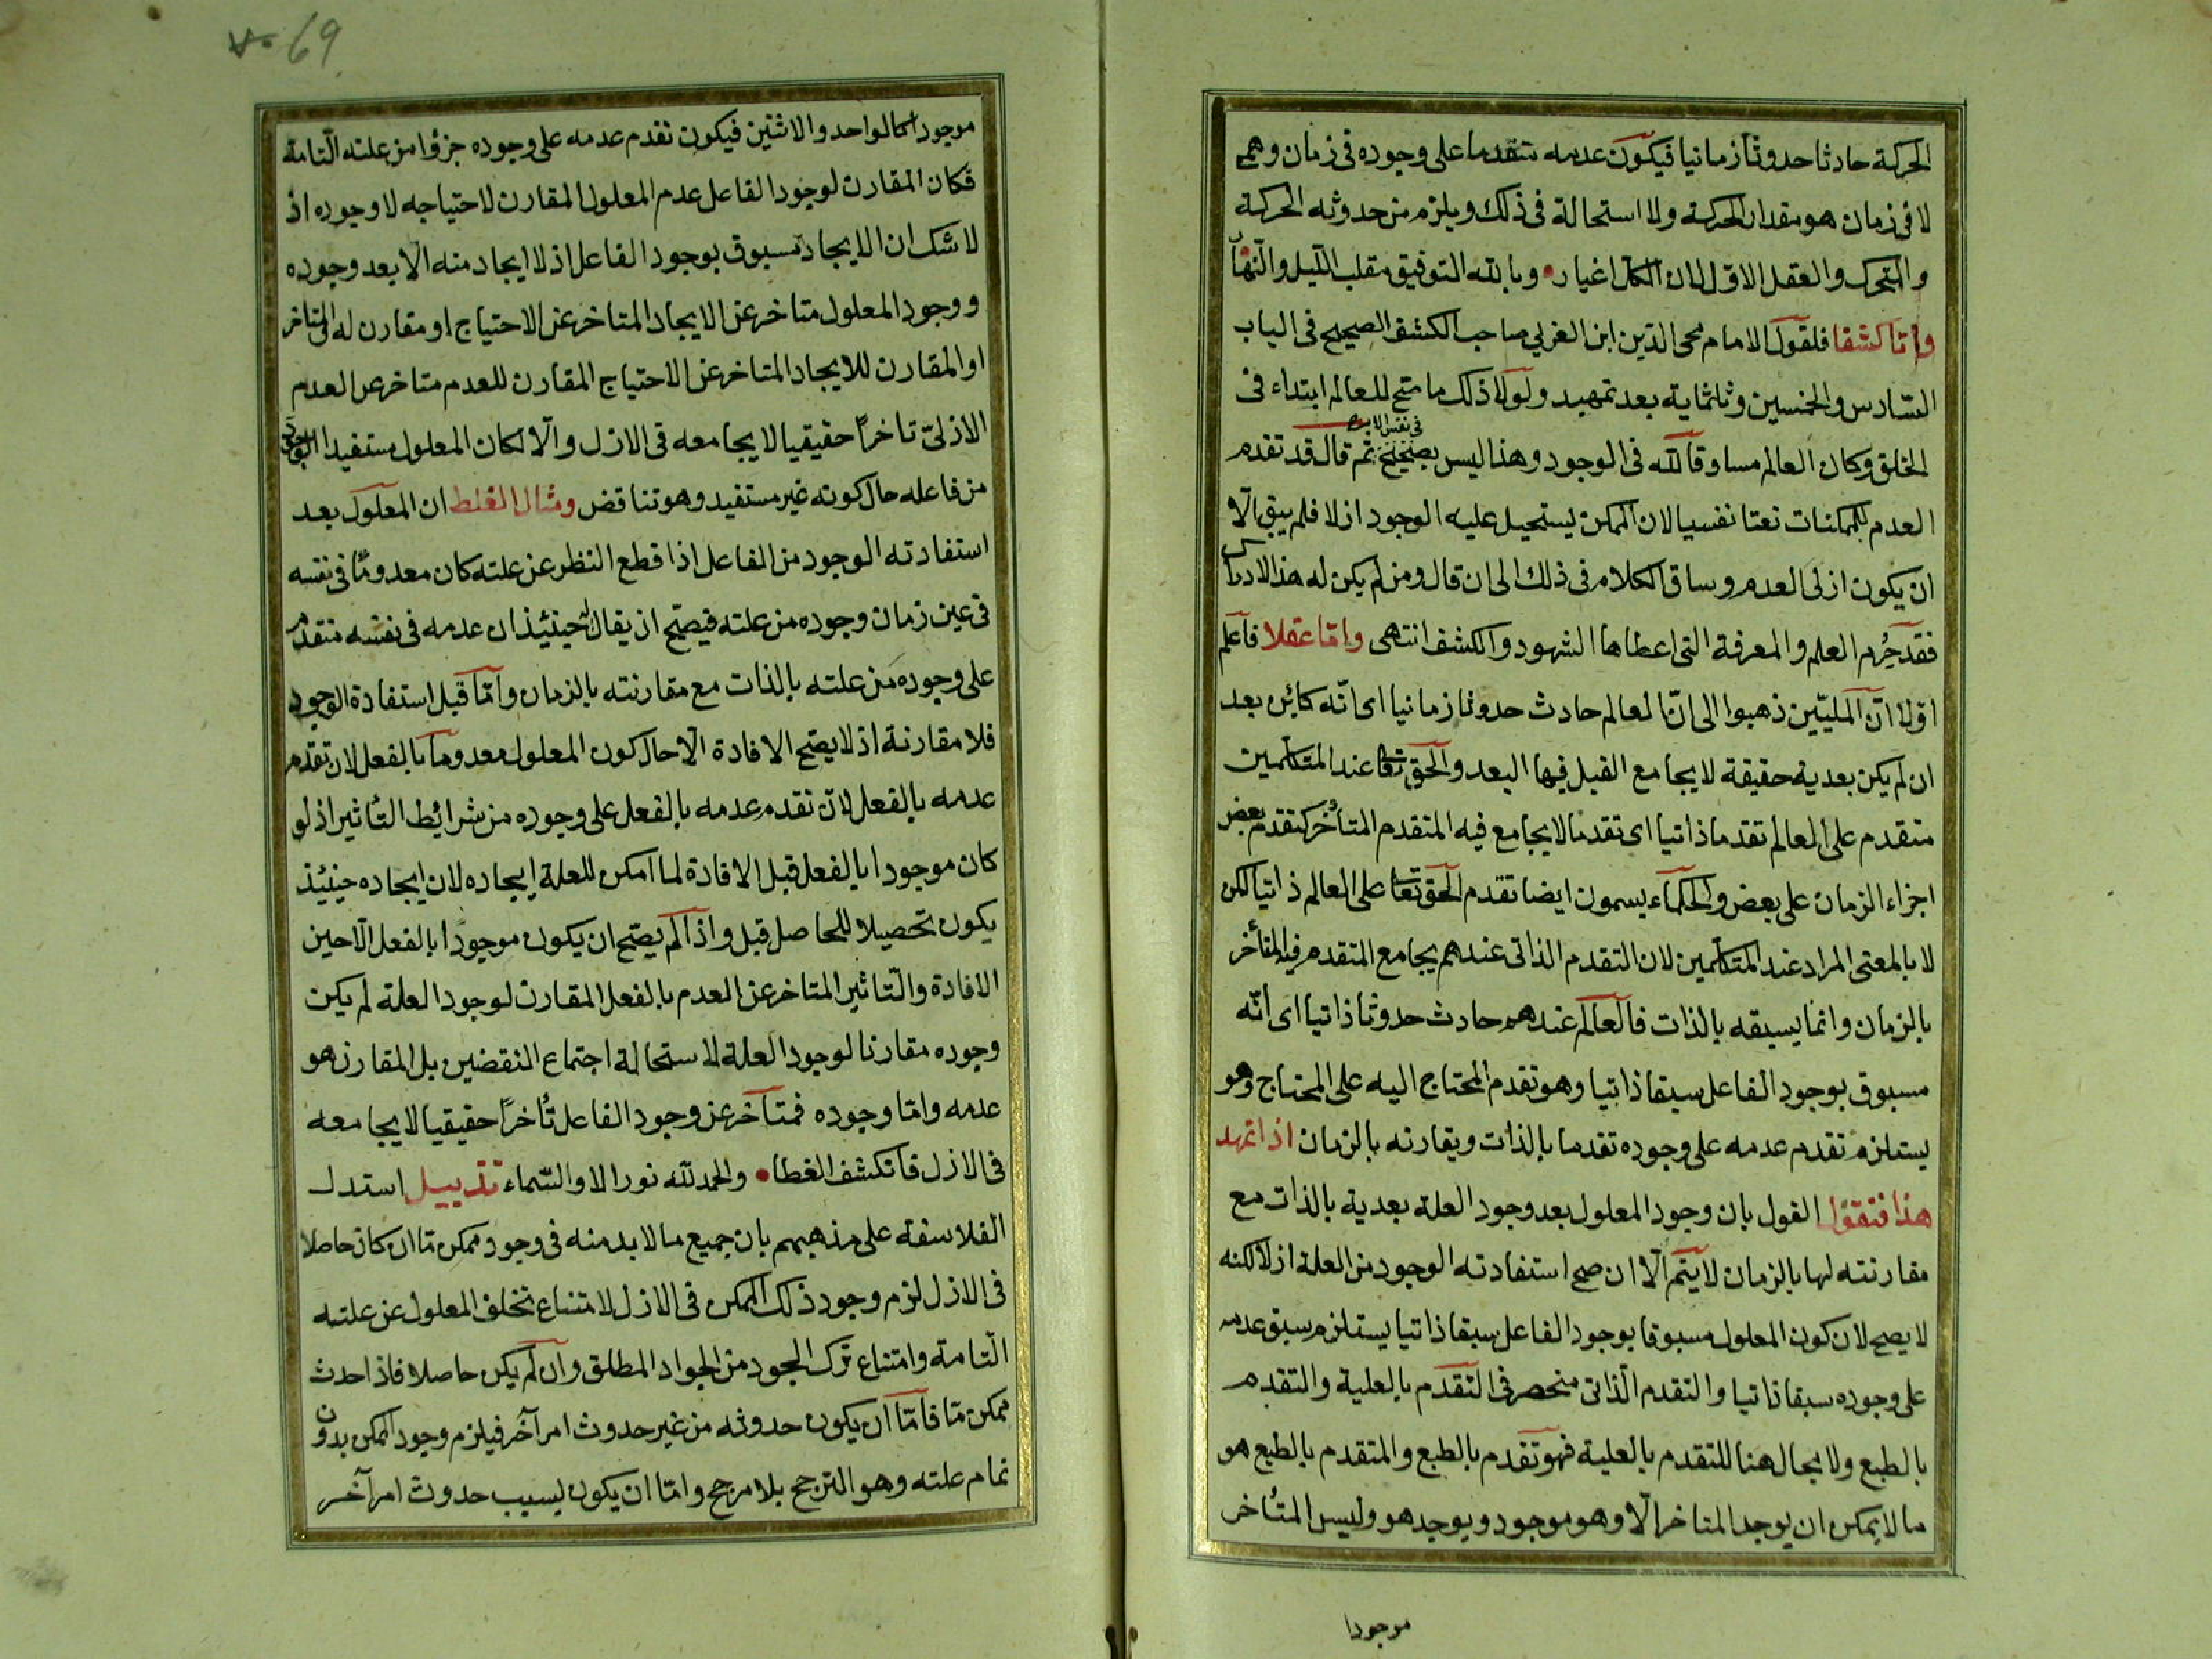 الحركة حادثا حدوثا زمانيا فيكون عدمه متقدما على وجوده فى زمان وهمى
لا فى زمان هو مقدار الحركة ولا استحالة فى ذلك ويلزم من حدوثه الحركة
والمتحرك والعقل الاول لان الكل اغيار وبالله التوفيق مقلب الليل والنهار
واما كشفا فلقول الامام محى الدين ابن العربى صاحب الكشف الصحيح فى الباب
السادس والخمسين وثلثماية بعد تمهيد ولولا ذلك ما صح للعالم ابتداء فى
الخلق وكان العالم مساوقا لله فى الوجود وهذا ليس بصحيح فى نفس الامر ثم قال قد تقدم
العدم للممكنات نعتا نفسيا لان الممكن يستحيل عليه الوجود ازلا فلم يبق الا
ان يكون ازلى العدم وساق الكلام فى ذلك الى ان قال ومن لم يكن له هذا الادراك
فقد حُرم العلم والمعرفة التى اعطاها الشهود والكشف انتهى واما عقلا فاعلم
اولا ان المليّين ذهبوا الى انّ العالم حادث حدوثا زمانيا اى انّه كائن بعد
ان لم يكن بعدية حقيقة لا يجامع القبل فيها البعد والحق تعا عند المتكلمين
متقدم على العالم تقدما ذاتيا اى تقدما لا يجامع فيه المتقدم المتأخر كتقدم بعض
اجزاء الزمان على بعض والحكماء يسمون ايضا تقدم الحق تعا على العالم ذاتيا لكن
لا بالمعنى المراد عند المتكلمين لان التقدم الذاتى عندهم يجامع المتقدم فيه المتأخر
بالزمان وانما يسبقه بالذات فالعالم عندهم حادث حدوثا ذاتيا اى انّه
مسبوق بوجود الفاعل سبقا ذاتيا وهو تقدم المحتاج اليه على المحتاج وهو
يستلزم تقدم عدمه على وجوده تقدما بالذات ويقارنه بالزمان اذا تمهد
هذا فنقول القول بان وجود المعلول بعد وجود العلة بعدية بالذات مع
مقارنته لها بالزمان لا يتم الا ان صح استفادته الوجود من العلة ازلا لكنه
لا يصح لان كون المعلول مسبوقا بوجود الفاعل سبقا ذاتيا يستلزم سبق عدمه
على وجوده سبقا ذاتيا والتقدم الذاتى منحصر فى التقدم بالعلية والتقدم
بالطبع ولا مجال هنا للتقدم بالعلية فهو تقدم بالطبع والمتقدم بالطبع هو
ما لا يمكن ان يوجد المتاخر الا وهو موجود ويوجد هو وليس المتأخر
موجودا
69
موجودا كالواحد والاثنين فيكون تقدم عدمه على وجوده جزؤا من علته التامة
فكان المقارن لوجود الفاعل عدم المعلول المقارن لاحتياجه لا وجوده اذ
لا شك ان الايجاد مسبوق بوجود الفاعل اذ لا ايجاد منه الا بعد وجوده
ووجود المعلول متاخر عن الايجاد المتاخر عن الاحتياج او مقارن له فالمتاخر
او المقارن للايجاد المتاخر عن الاحتياج المقارن للعدم متاخر عن العدم
الازلىّ تاخراً حقيقيا لا يجامعه فى الازل والا لكان المعلول مستفيدا الوجود
من فاعله حال كونه غير مستفيد وهو تناقض ومثال الغلط ان المعلول بعد
استفادته الوجود من الفاعل اذا قطع النظر عن علته كان معدوما فى نفسه
فى عين زمان وجوده من علته فيصح ان يقال حينئذ ان عدمه فى نفسه متقدم
على وجوده من علته بالذات مع مقارنته بالزمان واما قبل استفادة الوجود
فلا مقارنة اذ لا يصح الافادة الا حال كون المعلول معدوما بالفعل لان تقدم
عدمه بالفعل لان تقدم عدمه بالفعل على وجوده من شرائط التأثير اذ لو
كان موجودا بالفعل قبل الافادة لما امكن للعلة ايجاده لان ايجاده حينئذ
يكون تحصيلا للحاصل قبل واذا لم يصح ان يكون موجودا بالفعل الا حين
الافادة والتاثير المتاخر عن العدم بالفعل المقارن لوجود العلة لم يكن
وجوده مقارنا لوجود العلة لاستحالة اجتماع النقضين بل المقارن هو
عدمه واما وجوده فمتاخر عن وجود الفاعل تأخراً حقيقيا لا يجامعه
فى الازل فانكشف الغطا والحمد لله نور الا والسماء تذييل استدل
الفلاسفة على مذهبهم بان جميع ما لا بد منه فى وجود ممكن ما ان كان حاصلا
فى الازل لزم وجود ذلك الممكن فى الازل لامتناع تخلف المعلول عن علته
التامة وامتناع ترك الجود من الجواد المطلق وان لم يكن حاصلا فاذا حدث
ممكن ما فاما ان يكون حدوثه من غير حدوث امر آخر فيلزم وجود الممكن بدون
تمام علته وهو الترجح بلا مرجح واما ان يكون بسبب حدوث امر آخر